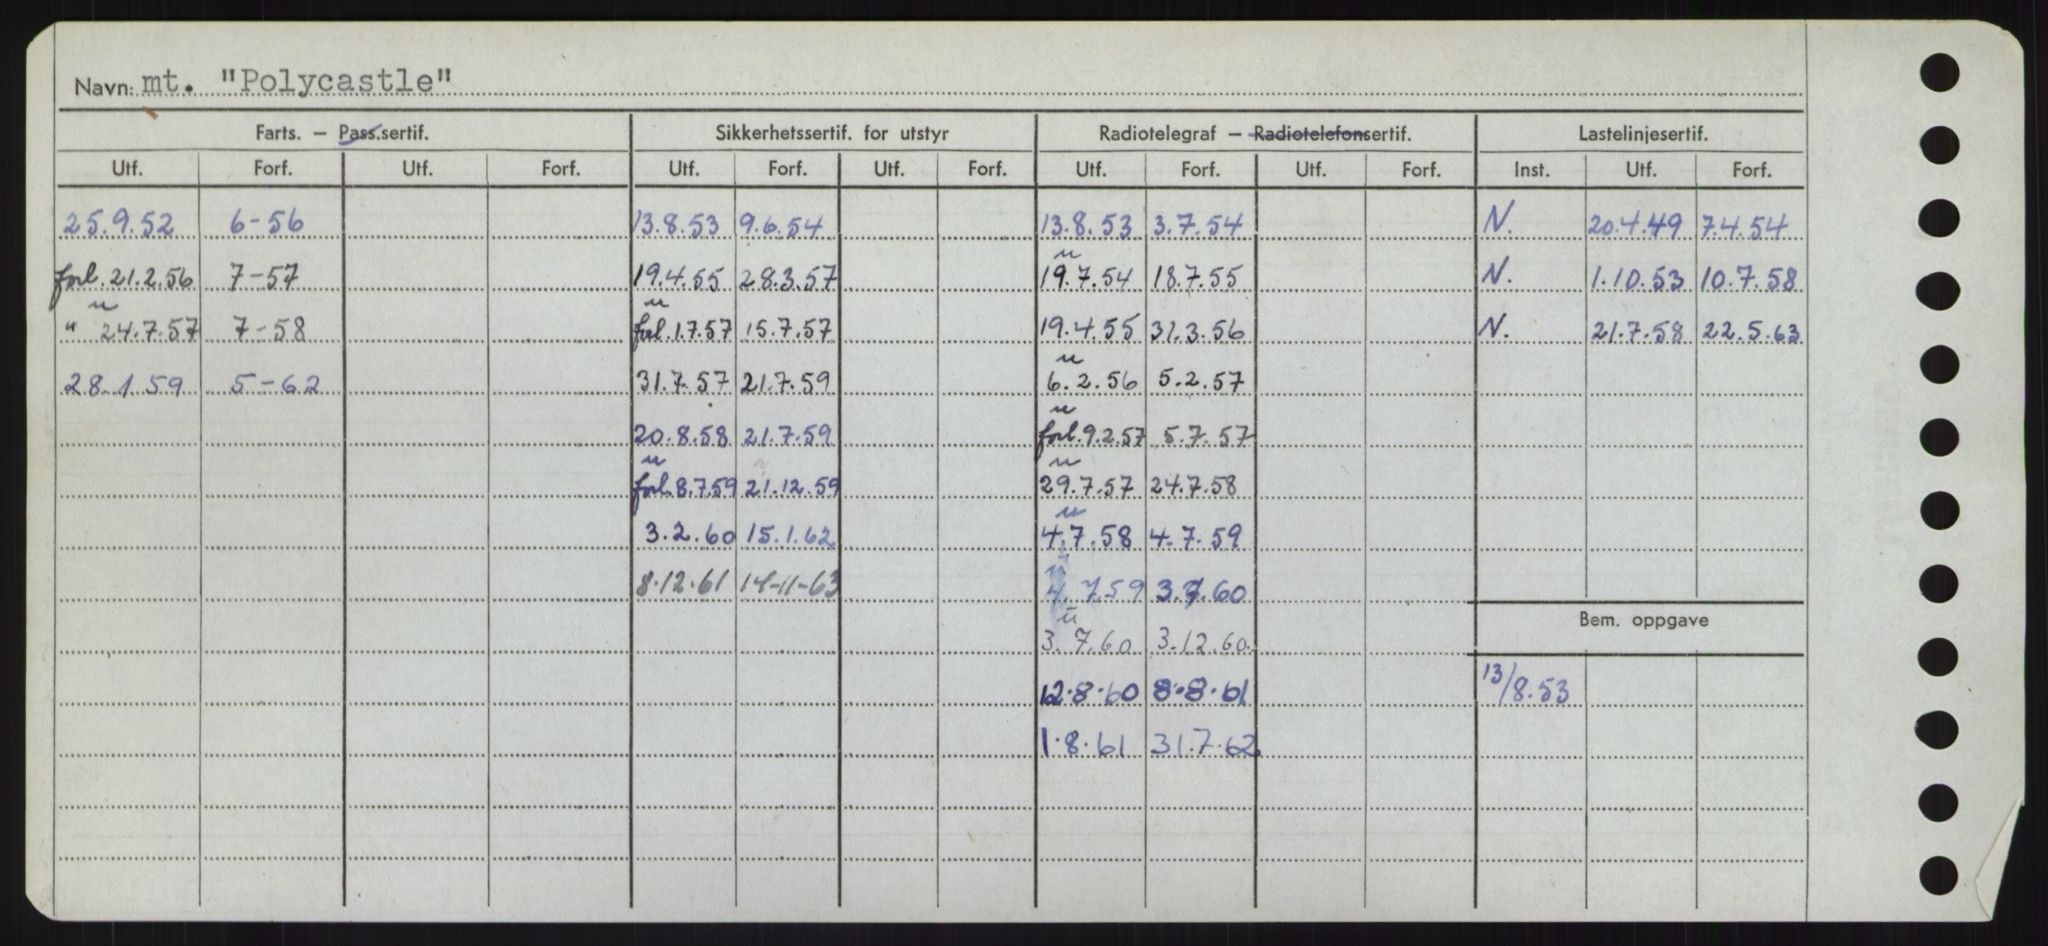 Navn: mt. "Polycastle"
Farts. – Pass.sertif. Sikkerhetssertif. for utstyr Radiotelegraf – Radiotelefonsertif. Lastelinjesertif.
Utf. Forf. Utf. Forf. Utf. Forf. Utf. Forf. Utf. Forf. Utf. Forf. Inst. Utf. Forf.
25.9.52 6-56 13.8.53 9.6.54 13.8.53 3.7.54 N. 20.4.49 7.4.54
forl. 21.2.56 7-57 19.4.55 28.3.57 19.7.54 18.7.55 N. 1.10.53 10.7.58
" 24.7.57 7-58 forl. 1.7.57 15.7.57 19.4.55 31.3.56 N. 21.7.58 22.5.63
28.1.59 5-62 31.7.57 21.7.59 6.2.56 5.2.57
20.8.58 21.7.59 forl. 9.2.57 5.7.57
forl. 8.7.59 21.12.59 29.7.57 24.7.58
3.2.60 15.1.62 4.7.58 4.7.59
8.12.61 14-11-63 4.7.59 3.7.60
Bem. oppgave
3.7.60 3.12.60
12.8.60 8.8.61 13/8.53
1.8.61 31.7.62